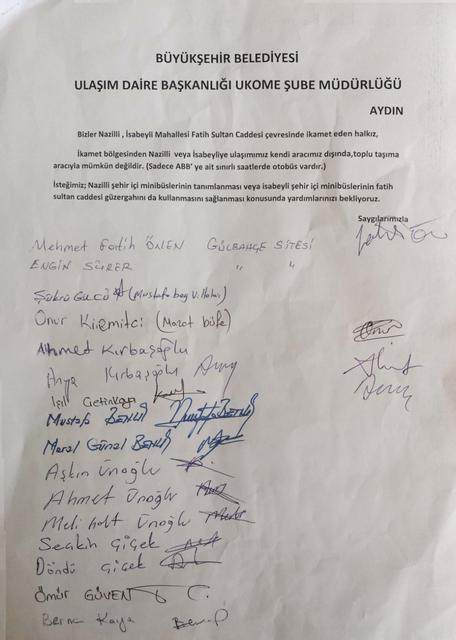 BÜYÜKŞEHİR BELEDİYESİ
ULAŞIM DAİRE BAŞKANLIĞI UKOME ŞUBE MÜDÜRLÜĞÜ
AYDIN
Bizler Nazilli , İsabeyli Mahallesi Fatih Sultan Caddesi çevresinde ikamet eden halkız,
İkamet bölgesinden Nazilli veya İsabeyliye ulaşımımız kendi aracımız dışında,toplu taşıma
aracıyla mümkün değildir. (Sadece ABB' ye ait sınırlı saatlerde otobüs vardır.)
İsteğimiz; Nazilli şehir içi minibüslerinin tanımlanması veya isabeyli şehir içi minibüslerinin fatih
sultan caddesi güzergahını da kullanmasını sağlanması konusunda yardımlarınızı bekliyoruz.
Saygılarımızla
Mehmet Fatih ÖNEN GÜLBAHÇE SİTESİ
ENGİN SÜRER " "
Şükrü Gücü (Mustafa bey
Onur Kirmitci (Mazot büfe)
Ahmet Kırbaşoğlu
Kırbaşoğlu
Işıl
Mustafa BENLİ
Maral Günal BENLİ
Aşkın Ünoğlu
Ahmet Ünoğlu
Ünoğlu
Seçkin Çiçek
Döndü Çiçek
Ömür GÜVEN
Berna Kaya